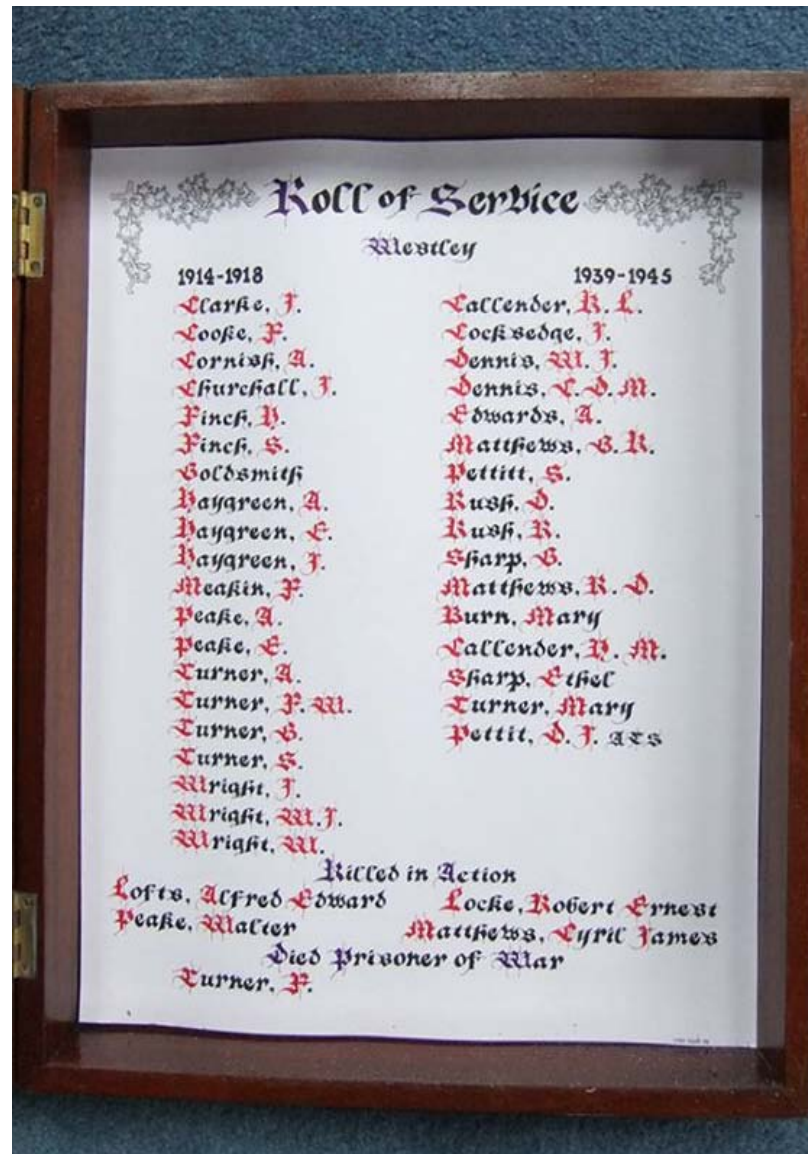 Roll of Service
Westley
1914-1918
Clarke, J.
Cooke, F.
Cornish, A.
Churchall, J.
Finch, H.
Finch, S.
Goldsmith
Haygreen, A.
Haygreen, E.
Haygreen, J.
Meakin, F.
Peake, A.
Peake, E.
Turner, A.
Turner, F. W.
Turner, G.
Turner, S.
Wright, J.
Wright, W.J.
Wright, W.
1939-1945
Callender, R. L.
Cocksedge, J.
Dennis, W. J.
Dennis, C. D. M.
Edwards, A.
Matthews, G. R.
Pettitt, S.
Rush, D.
Rush, R.
Sharp, G.
Matthews, R. D.
Burn, Mary
Callender, H. M.
Sharp, Ethel
Turner, Mary
Pettit, D. J. ATS
Killed in Action
Lofts, Alfred Edward
Peake, Walter
Locke, Robert Ernest
Matthews, Cyril James
Died Prisoner of War
Turner, F.